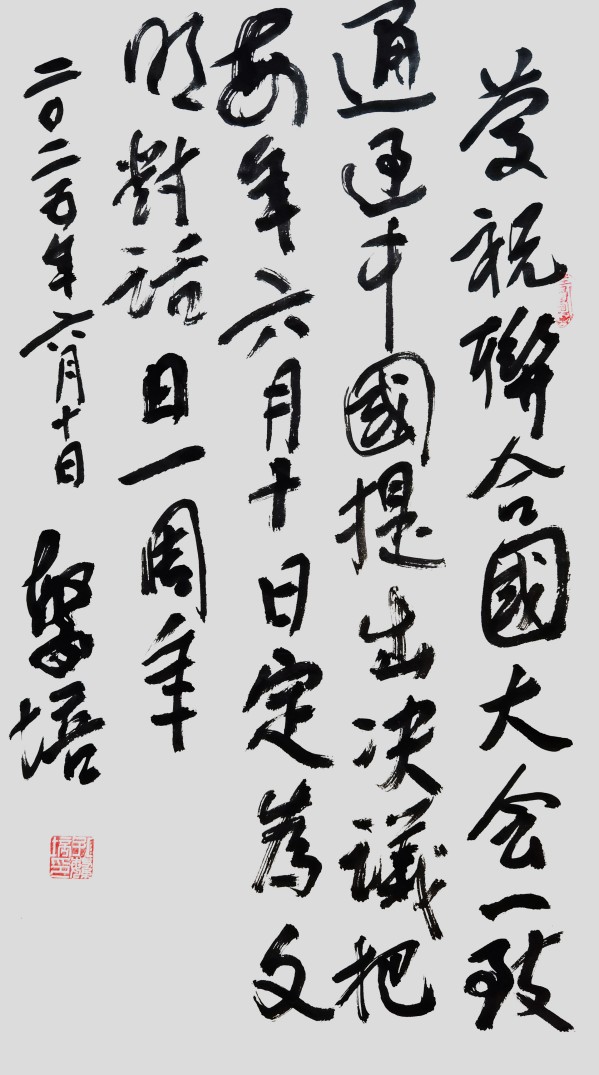 慶祝聯合國大会一致
通過中國提出决議把
每年六月十日定為文
明對話日一周年
二〇二五年六月十日 培